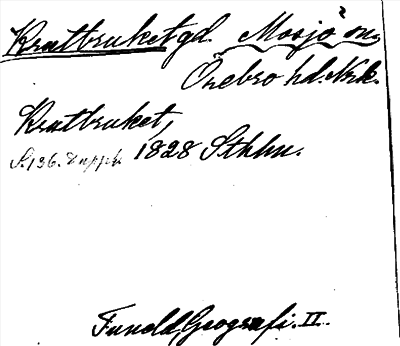 Krutbruket gd. Mosjö sn.
Örebro hd. Nrk.
Krutbruket,
S. 136. Uppl. 1828 Sthlm.
Tuneld, Geografi. II.